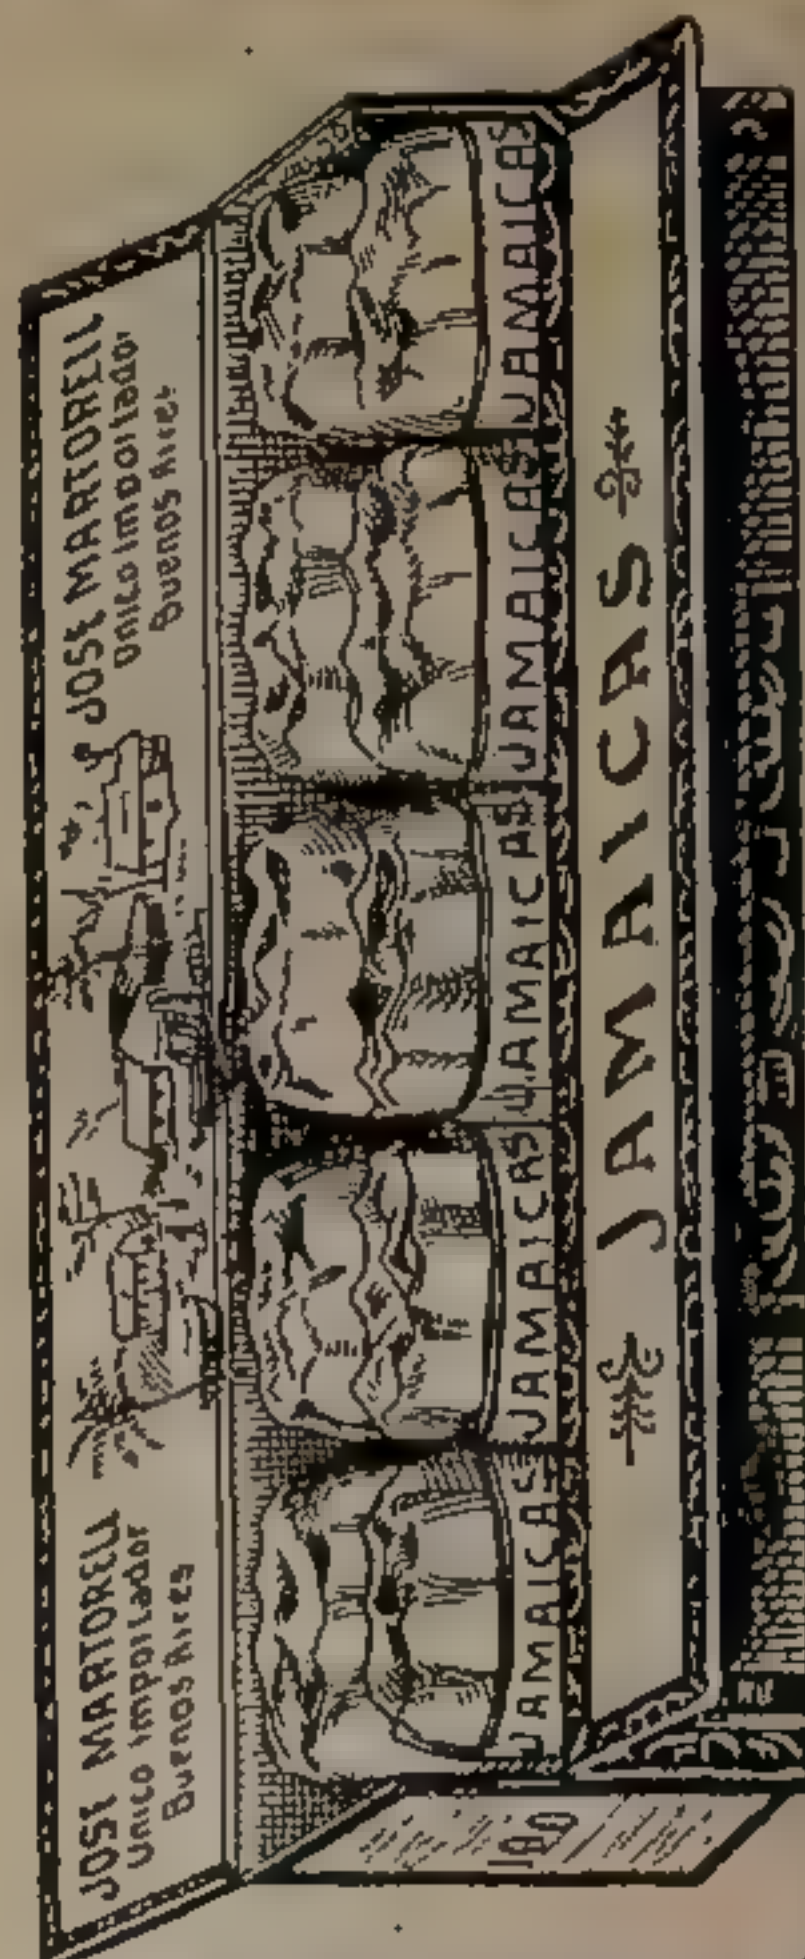 JOSE MARTORELL
Unico importador
Buenos Aires
JOSE MARTORELL
Unico importador
Buenos Aires
JAMAICAS
JAMAICAS
JAMAICAS
JAMAICAS
JAMAICAS
JAMAICAS
100